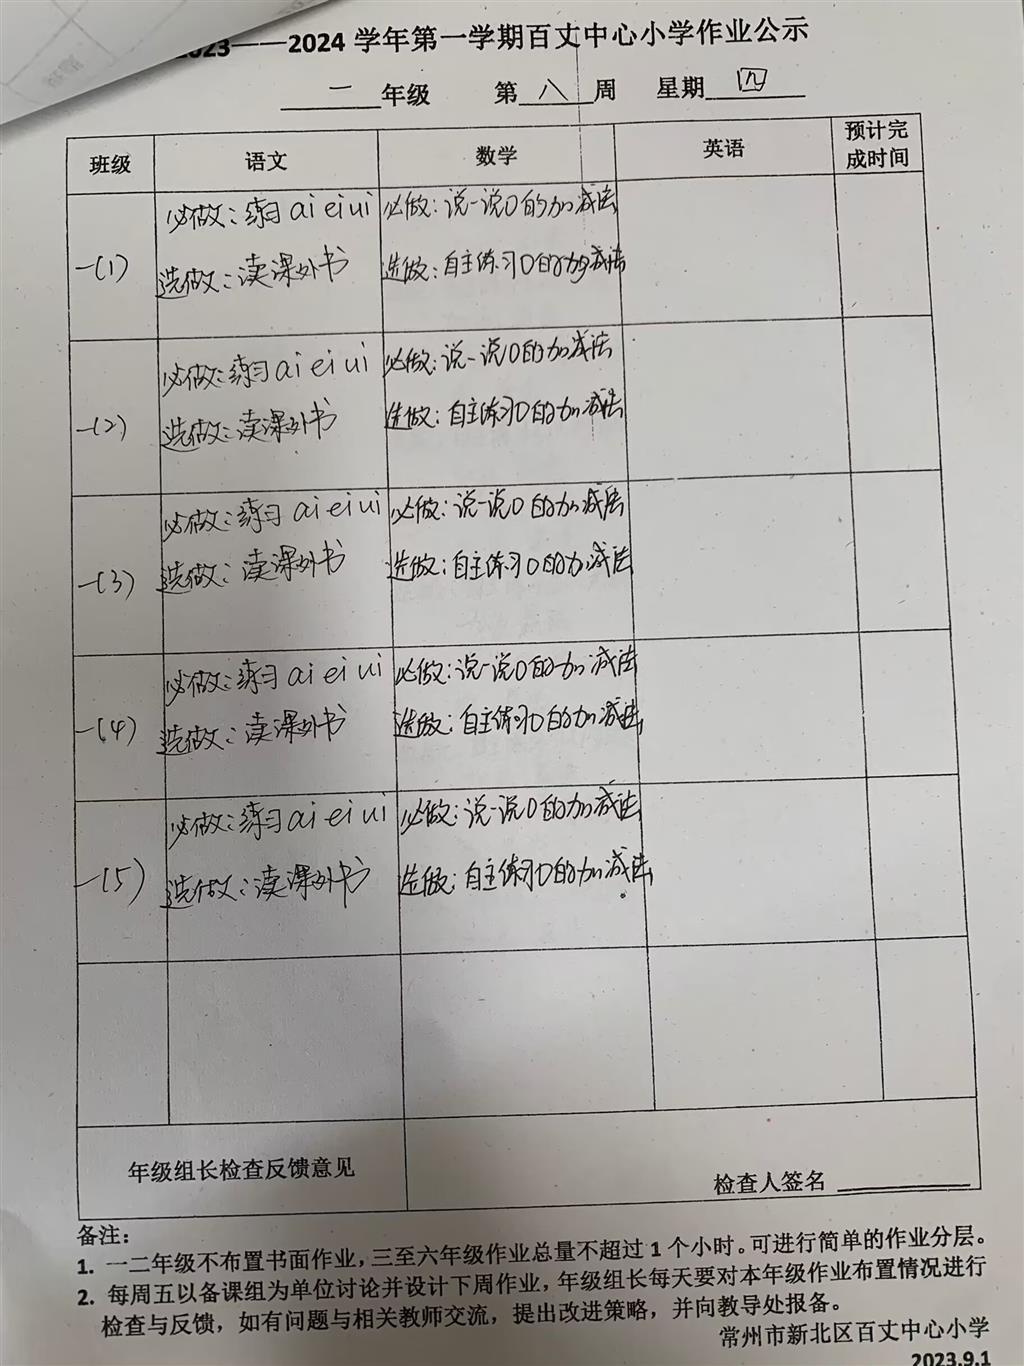 2023——2024 学年第一学期百丈中心小学作业公示
一 年级 第 八 周 星期 四
班级 语文 数学 英语 预计完成时间
一(1) 必做：练习 ai ei ui 必做：说一说0的加减法
选做：读课外书 选做：自主练习0的加减法
一(2) 必做：练习 ai ei ui 必做：说一说0的加减法
选做：读课外书 选做：自主练习0的加减法
一(3) 必做：练习 ai ei ui 必做：说一说0的加减法
选做：读课外书 选做：自主练习0的加减法
一(4) 必做：练习 ai ei ui 必做：说一说0的加减法
选做：读课外书 选做：自主练习0的加减法
一(5) 必做：练习 ai ei ui 必做：说一说0的加减法
选做：读课外书 选做：自主练习0的加减法.
年级组长检查反馈意见 检查人签名
备注：
1. 一二年级不布置书面作业，三至六年级作业总量不超过 1 个小时。可进行简单的作业分层。
2. 每周五以备课组为单位讨论并设计下周作业，年级组长每天要对本年级作业布置情况进行
检查与反馈，如有问题与相关教师交流，提出改进策略，并向教导处报备。
常州市新北区百丈中心小学
2023.9.1